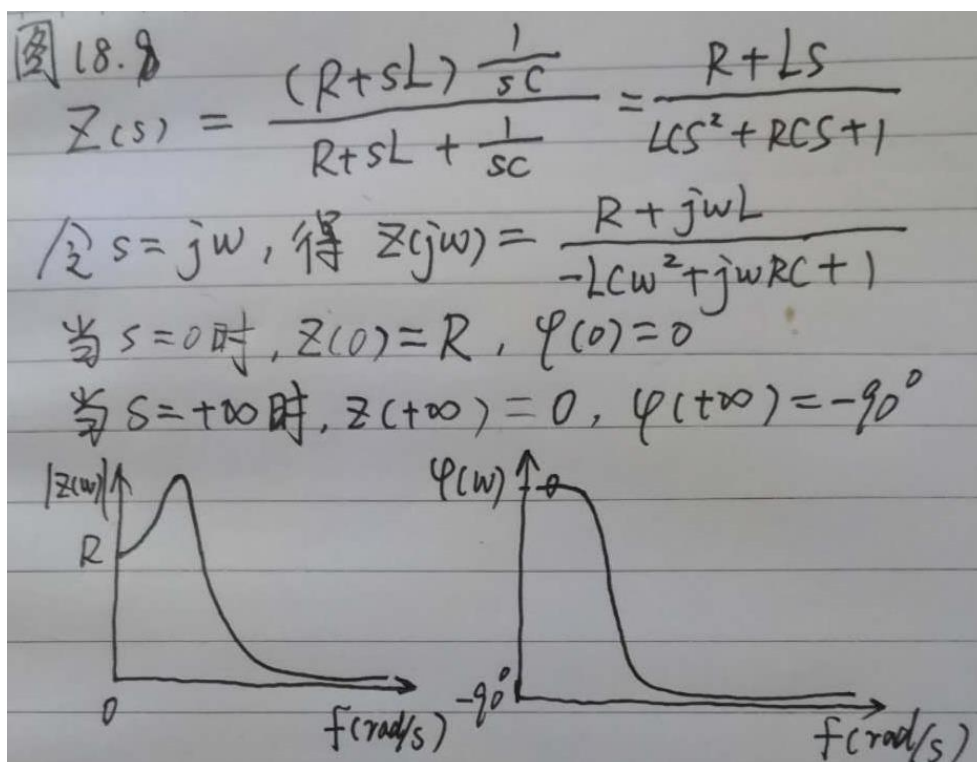 图 18.8
Z(s) = (R+sL) 1/sC / R+sL + 1/sC = R+LS / LCS²+RCS+1
令 s=jw, 得 Z(jw) = R+jwL / -LCw²+jwRC+1
当 s=0时, Z(0)=R, φ(0)=0
当 S=+∞时, Z(+∞)=0, φ(+∞)=-90°
|Z(w)|
R
0
f(rad/s)
φ(w)
0
-90°
f(rad/s)